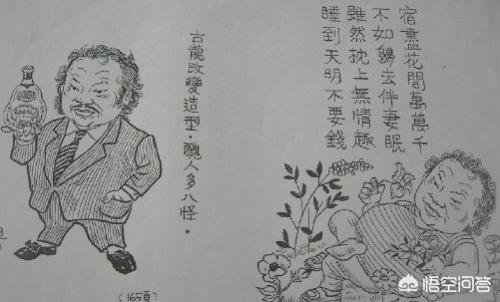 宿盡花間萬萬千
不如歸去伴妻眠
雖然枕上無情趣
睡到天明不要錢
古龍改變造型，醜人多八怪。
悟空问答